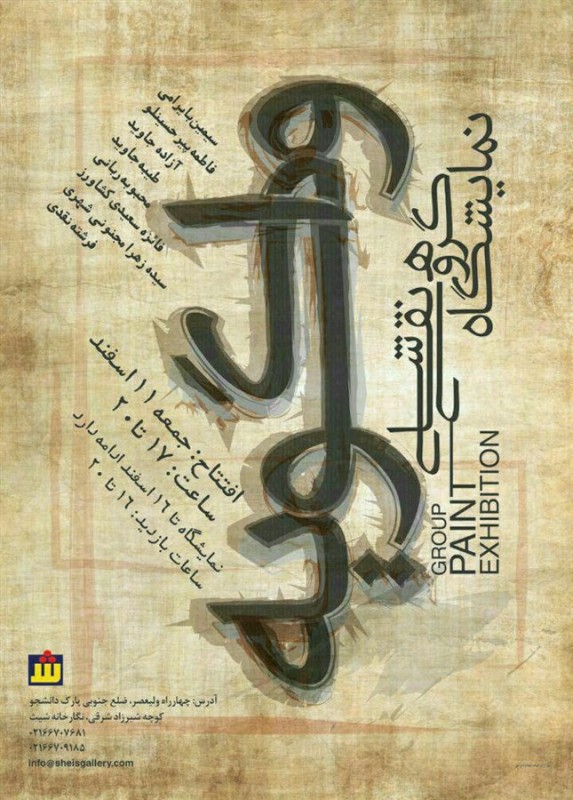 نمایشگاه
گروهی
نقاشی
GROUP
PAINT
EXHIBITION
واگویه
سیمین بایرامی
فاطمه پیرحسینلو
آزاده جاوید
طیبه جاوید
محبوبه ربانی
فائزه سعیدی کشاورز
سیده زهرا مجنونی شهری
فرشته نقدی
افتتاح: جمعه ۱۱ اسفند
ساعت: ۱۷ تا ۲۰
نمایشگاه تا ۱۶ اسفند ادامه دارد
ساعات بازدید: ۱۶ تا ۲۰
آدرس: چهارراه ولیعصر، ضلع جنوبی پارک دانشجو
کوچه شیرزاد شرقی، نگارخانه شیث
۰۲۱۶۶۷۰۷۶۸۱
۰۲۱۶۶۷۰۹۱۸۵
info@sheisgallery.com